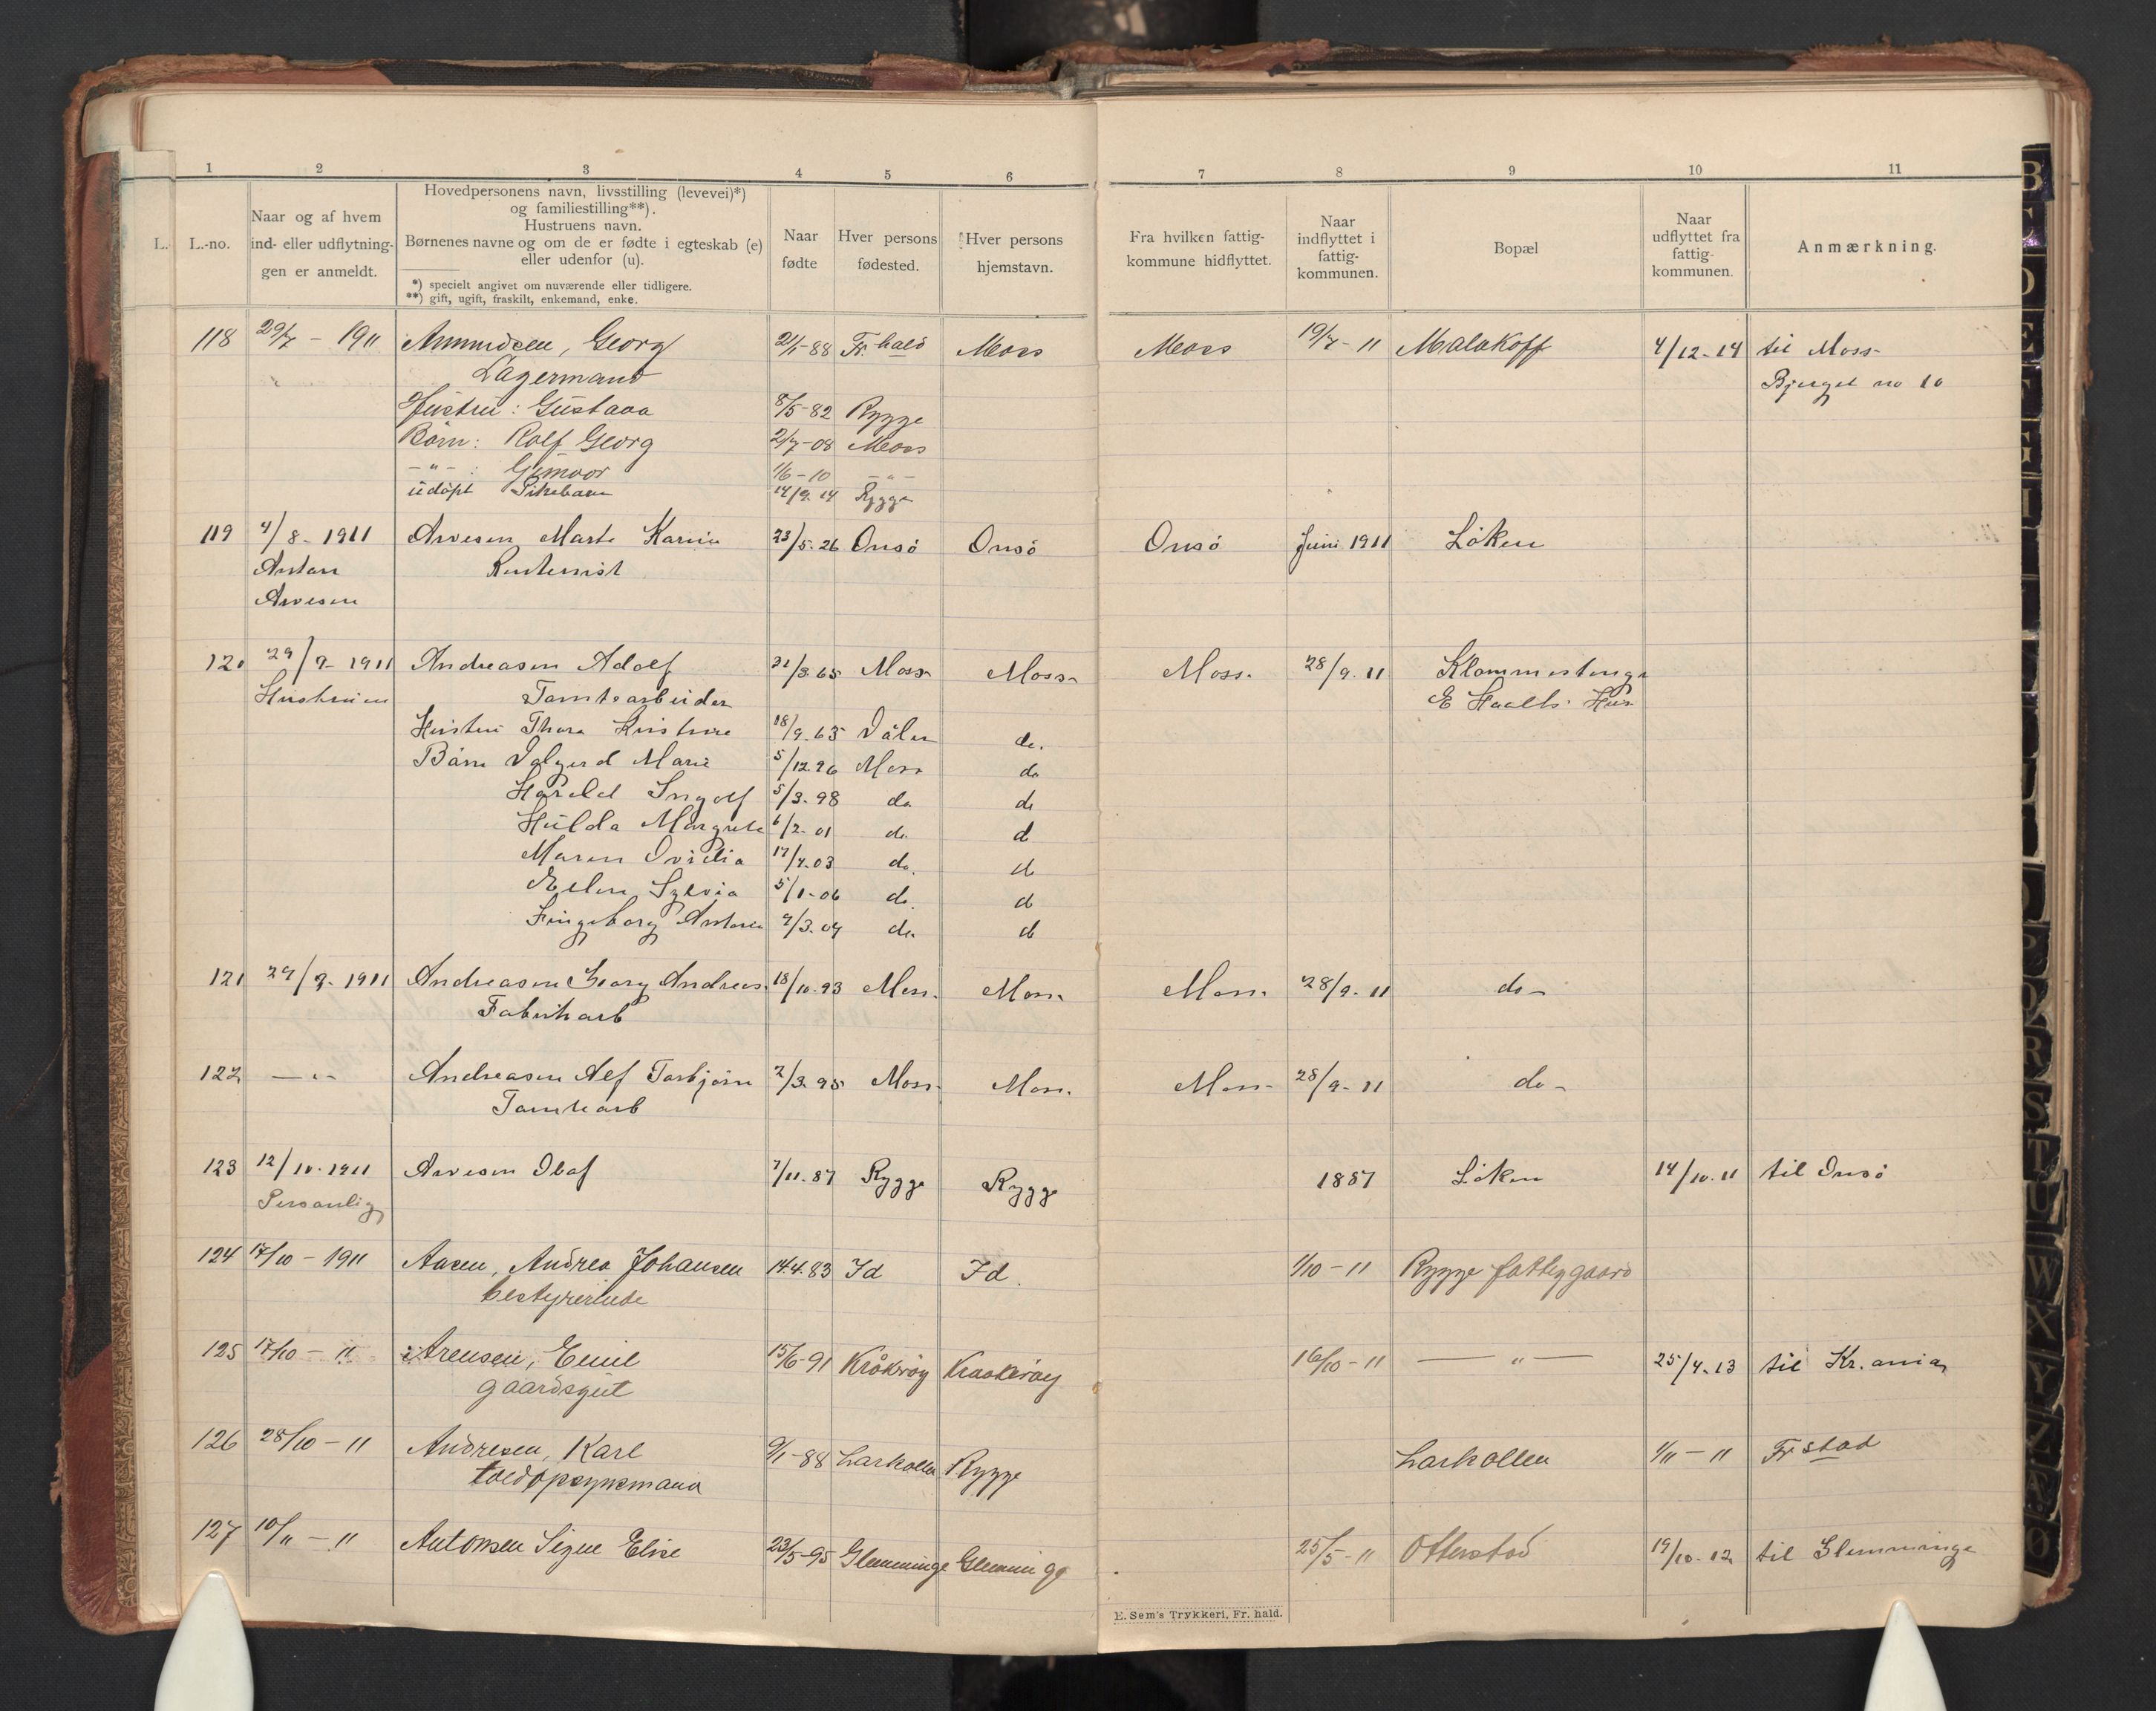 1 2 3 4 5 6 7 8 9 10 11
L. L.-no.
Naar og af hvem
ind- eller udflytnin-
gen er anmeldt.
Hovedpersonens navn, livsstilling (levevei)*)
og familiestilling**).
Hustruens navn.
Børnenes navne og om de er fødte i egteskab (e)
eller udenfor (u).
*) specielt angivet om nuværende eller tidligere.
**) gift, ugift, fraskilt, enkemand, enke.
Naar
fødte
Hver persons
fødested.
Hver persons
hjemstavn.
Fra hvilken fattig-
kommune hidflyttet.
Naar
indflyttet i
fattig-
kommunen.
Bopæl
Naar
udflyttet fra
fattig-
kommunen.
Anmærkning.
118 29/7 - 1911 Ammundsen, Georg 21/1-88 Fr.hald Moss Moss 19/7-11 Malakoff 4/12-14 til Moss
Lagermand Bjerget no 10
Hustru: Gustava 8/5-82 Rygge
Børn: Rolf Georg 2/7-08 Moss
-"- : Gunvor 1/6-10 -"-
udøpt Pikebarn 14/9.14 Rygge
119 4/8-1911 Arvesen Marte Karine 23/5.26 Onsö Onsö Onsö Juni 1911 Löken
Anton Rentenist
Arvesen
120 29/9-1911 Andreasen Adolf 21/3.65 Moss Moss Moss. 28/9.11
Hustruen Tomtearbeider E Hus
Hustru Thora 18/9.63 Våler do.
Børn Valgerd Marie 5/12.96 Moss do
Harald Ingolf 5/3-98 do do
Hulda Margrete 6/2-01 do. d
Maren 17/4.03 do. do
Ellen Sylvia 5/1-06 do. do
Ingeborg 9/3.09 do do
121 29/9-1911 Andreasen Georg Andreas 18/10.93 Moss. Moss. Moss. 28/9-11 do-
Fabrikarb
122 -"- Andreasen Alf Torbjørn 2/3.95 Moss. Moss. Moss- 28/9-11 do-
Tomtearb
123 12/10-1911 Arvesen Olaf 7/11.87 Rygge Rygge 1887 Löken 14/10.11 til Onsö
Personlig
124 17/10-1911 Aasen, Andrea Johansen 14.4.83 Id Id. 1/10-11 Rygge fattiggaard
bestyrerinde
125 17/10-11 Arensen, Emil 15/6-91 Kråkröy Kraakeröy 16/10-11 -"- 25/4.13 til Kr.ania
gaardsgut
126 28/10-11 Andresen, Karl 9/1-88 Larkollen Rygge Larkollen 1/11-11 Fr.stad
toldopsynsmand
127 10/11-11 Antonsen Signe Elise 23/5-95 Glemminge Glemminge 25/5-11 Otterstad 19/10-12 til Glemminge
E. Sem's Trykkeri, Fr. hald.
B C D E F G
P Q R S T U W X Y Z Æ Ø